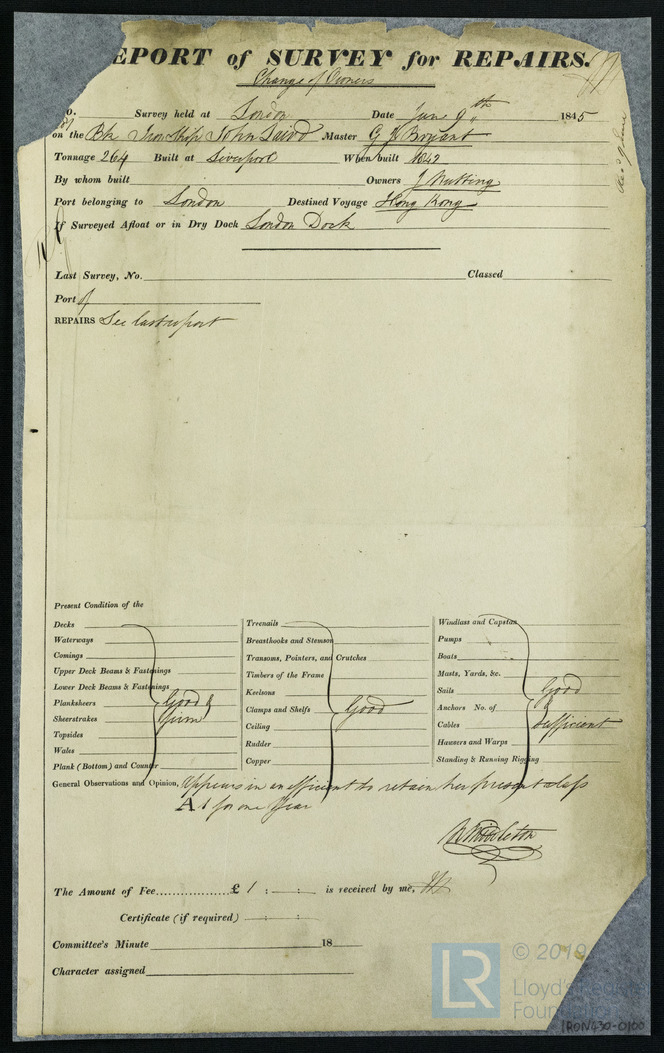 EPORT of SURVEY for REPAIRS.
Change of Owners
o. Survey held at London Date June 9th 1845
on the Bk Iron Ship John Laird Master G J Bryant
Tonnage 264 Built at Liverpool When built 1842
By whom built Owners J Nutting
Port belonging to London Destined Voyage Hong Kong
If Surveyed Afloat or in Dry Dock London Dock
Last Survey, No. Classed
Port of
REPAIRS See last report
Present Condition of the
Decks
Waterways
Comings
Upper Deck Beams & Fastenings
Lower Deck Beams & Fastenings
Planksheers
Sheerstrakes
Topsides
Wales
Plank (Bottom) and Counter
Good &
Firm
Treenails
Breasthooks and Stemson
Transoms, Pointers, and Crutches
Timbers of the Frame
Keelsons
Clamps and Shelfs
Ceiling
Rudder
Copper
Good
Windlass and Capstan
Pumps
Boats
Masts, Yards, &c.
Sails
Anchors No. of
Cables
Hawsers and Warps
Standing & Running Rigging
Good
&
Sufficient
General Observations and Opinion, Appears in an efficient to retain her present class
A 1 for one Year
Middleton
The Amount of Fee............... £ 1 : - : is received by me,
Certificate (if required) - : - :
Committee's Minute 18
Character assigned
LR
© 2019
Lloyd's Register
Foundation
IRON430-0100